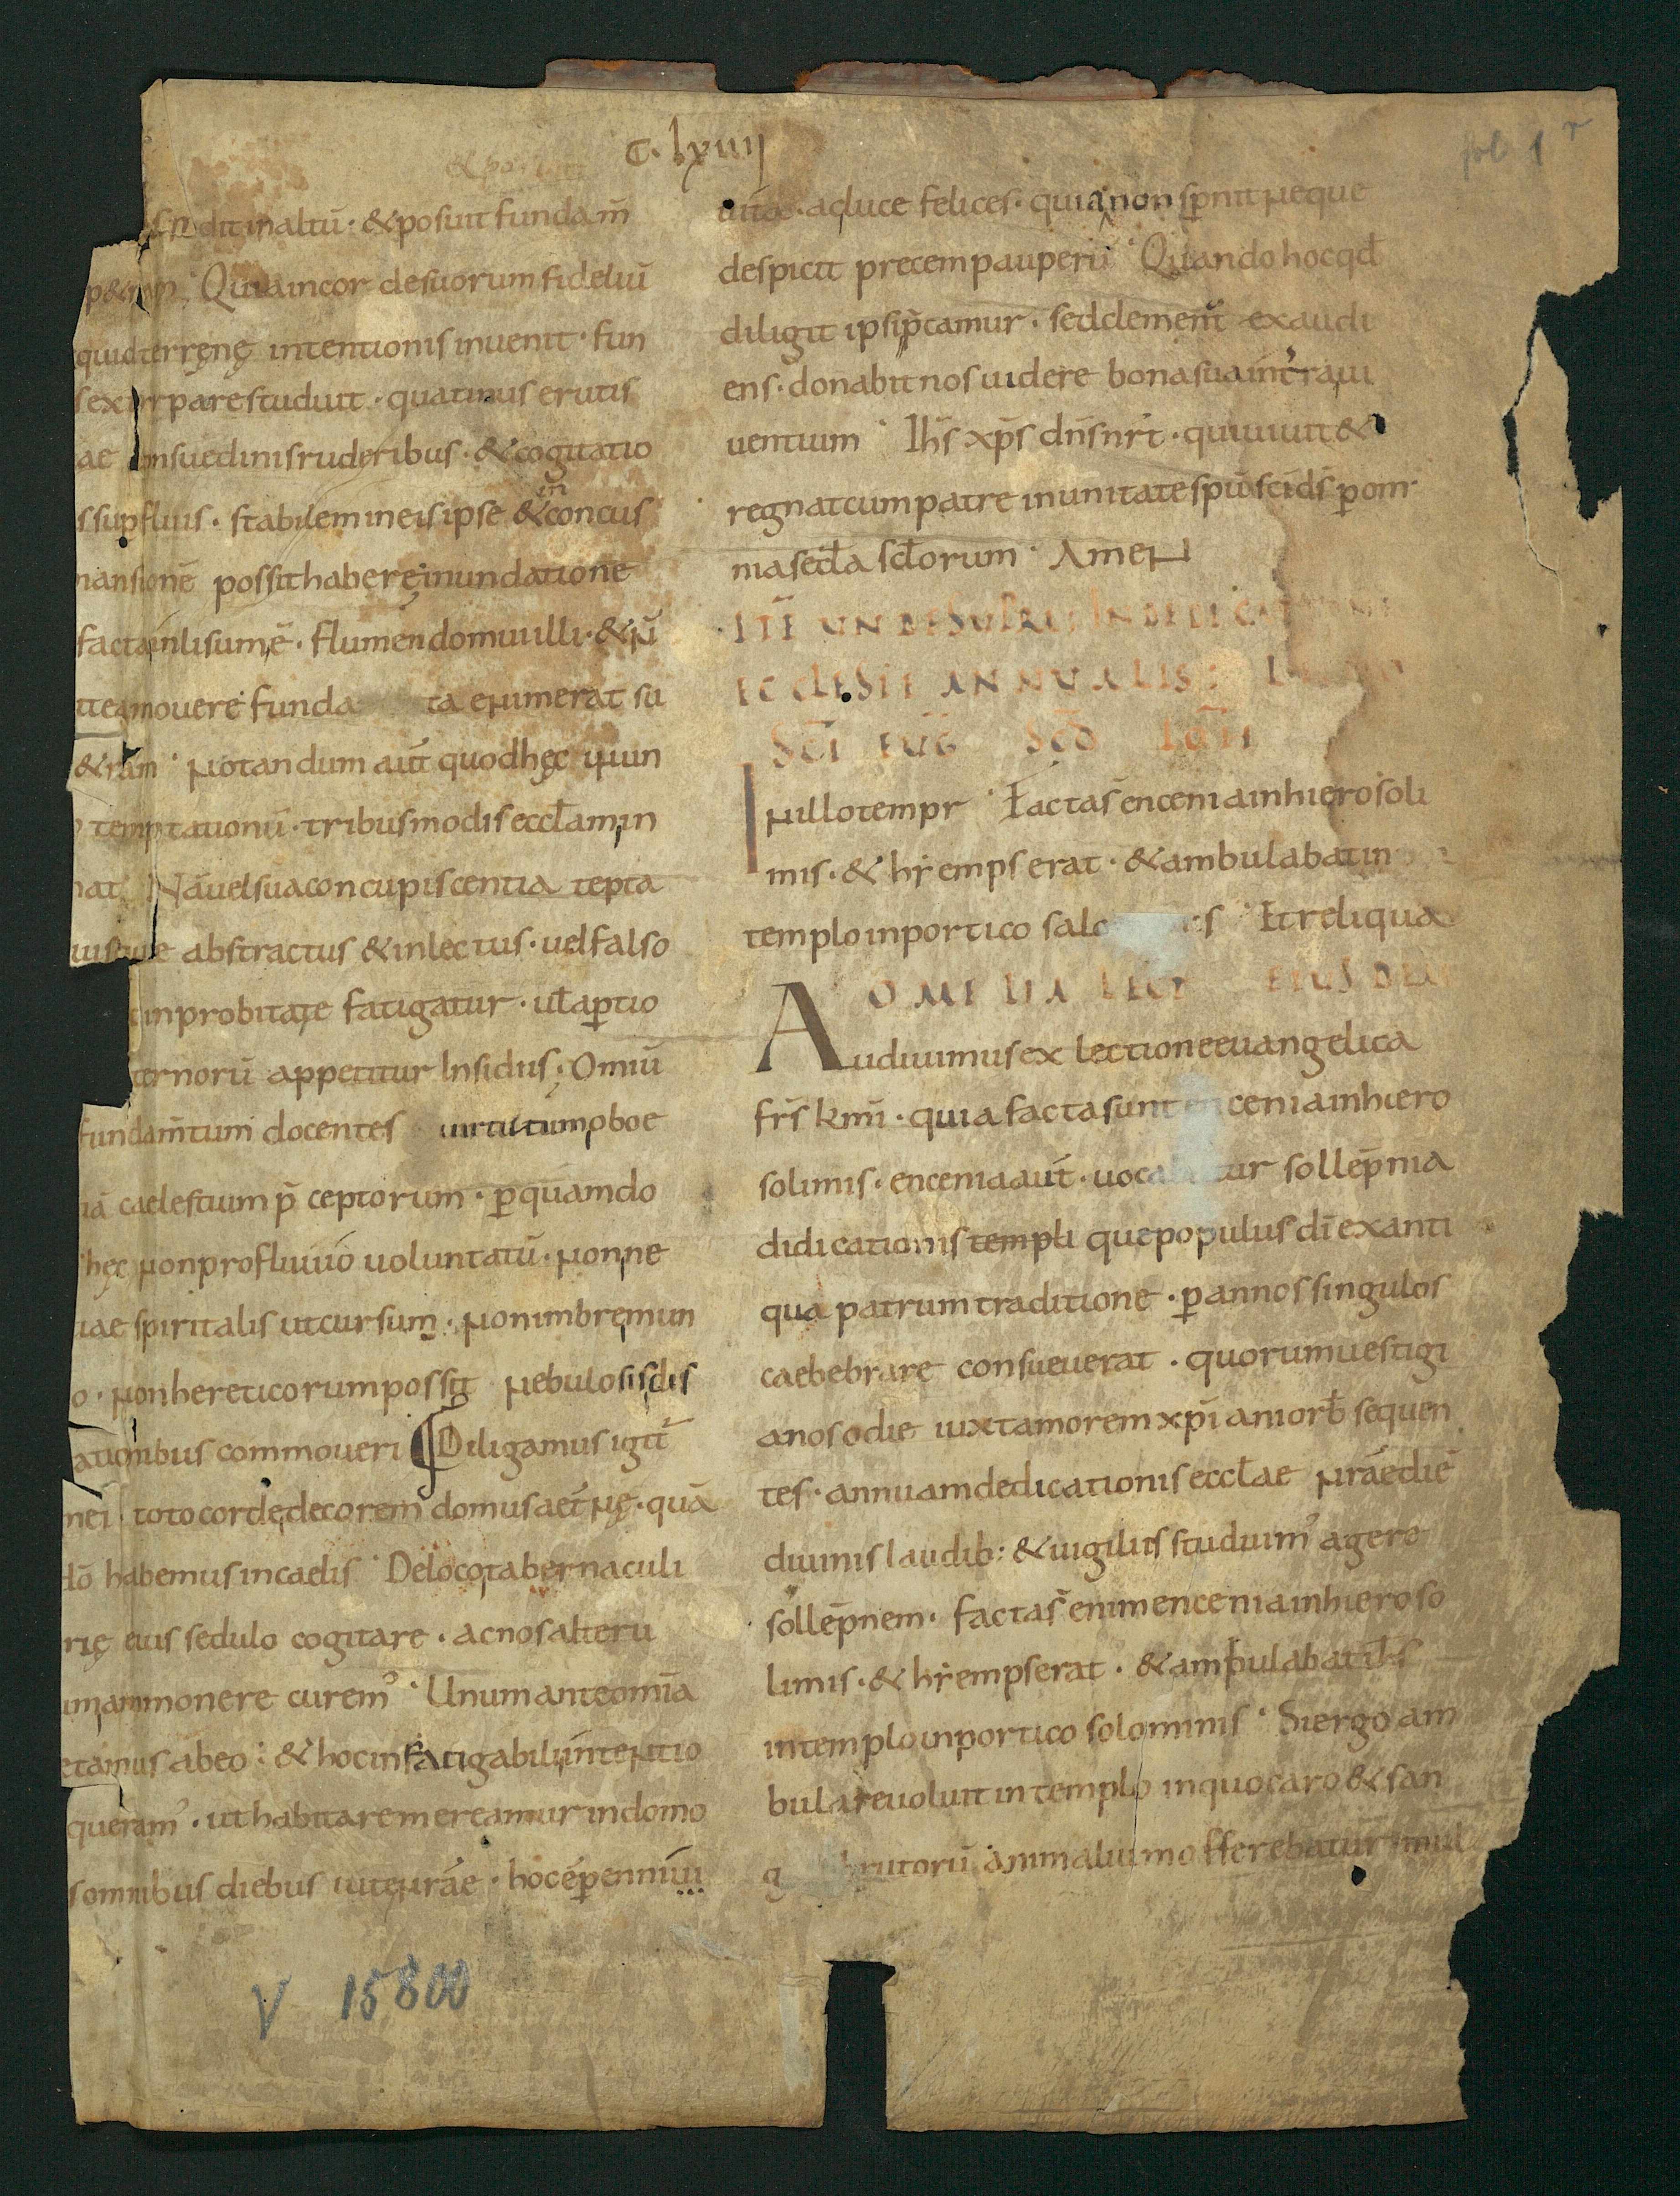 C. lxiiij
fol 1 r
&posuit
fodit inaltū · &posuit fundam̄
p&ram · Quia incor de suorum fideliū
quid terrenę intentionis inuenit · fun
s extirpare studuit · quatinus erutis
ae consuedinis ruderibus · &cogitatio
s supfluis · stabilem ineis ipse &inconcus
mansionē possit habere inundatione
facta inlisum ē · flumen domui illi · &ñ
it eam mouere funda ta enim erat su
&ram · Notandum aūt quod hęc inun
temptationū · tribus modis eccl̄am in
nat Nā uel sua concupiscentia tepta
uisque abstractus &inlectus · uel falso
inprobitate fatigatur · ut̄ aptio
ternorū appetitur Insidiis · Omiū
fundam̄tum docentes uirtutum oboe
iā caelestium p̄ceptorum · p quam do
hęc non profluuio uoluntatū · nonne
uae spiritalis ut cursum · non imbrem un
o · non hereticorum possit nebulosis dis
ationibus commoueri Diligamus igit̄
mei toto corde decorem domus aet̄nę · quā
dō habemus incaelis · De loco tabernaculi
rię eius sedulo cogitare · ac nos alteru
im ammonere curem᾿ · Unum ante omīa
etamus abeo : & hoc infatigabili intentio
queram᾿ · ut habitare mereamur indomo
s omnibus diebus uite n̄rae · hoc ē p ennī ui
uita · ac luce felices · quia non sp̄nit neque
despicit precem pauperū · Quando hoc qd̄
diligit ipsi p̄camur · sed clement̄ exaudi
ens · donabit nos uidere bona sua int̄ra ui
uentium · Ih̄s xp̄s dn̄s nr̄t · qui uiuit &
regnat cum patre in unitate sp̄ū sc̄i ds̄ p om
nia secl̄a scl̄orum · Amen
ITĒ UNDE SUPRA IN DEDICATIONE
ECCLESIE ANNUALIS
SC̄I EUG̅ SC̄D̄ IOH̄
In illo tempr · Facta s̄ encenia in hierosoli
mis · & hȳemps erat · & ambulabat in
templo in portico salo s · Et reliqua
OMELIA LECT EIUSDEM
Audiuimus ex lectione euangelica
fr̄s km̄i · quia facta sunt encenia in hiero
solimis · encenia aūt · uoca tur sollēpnia
didicationis templi que populus dī ex anti
qua patrum traditione · p annos singulos
caebebrare consueuerat · quorum uestigi
a nos odie iuxta morem xp̄iani orb̄ sequen
tes · annuam dedicationis eccl̄ae nr̄ae diē
diuinis laudib: & uigiliis studuim᾿ agere
sollēpnem · facta s̄ enim encenia in hieroso
limis · & hȳemps erat · & ambulabat ih̄s
in templo in portico solominis · Si ergo am
bulare uoluit in templo in quo caro & san
g brutorū animalium offerebatur mul
V 15800